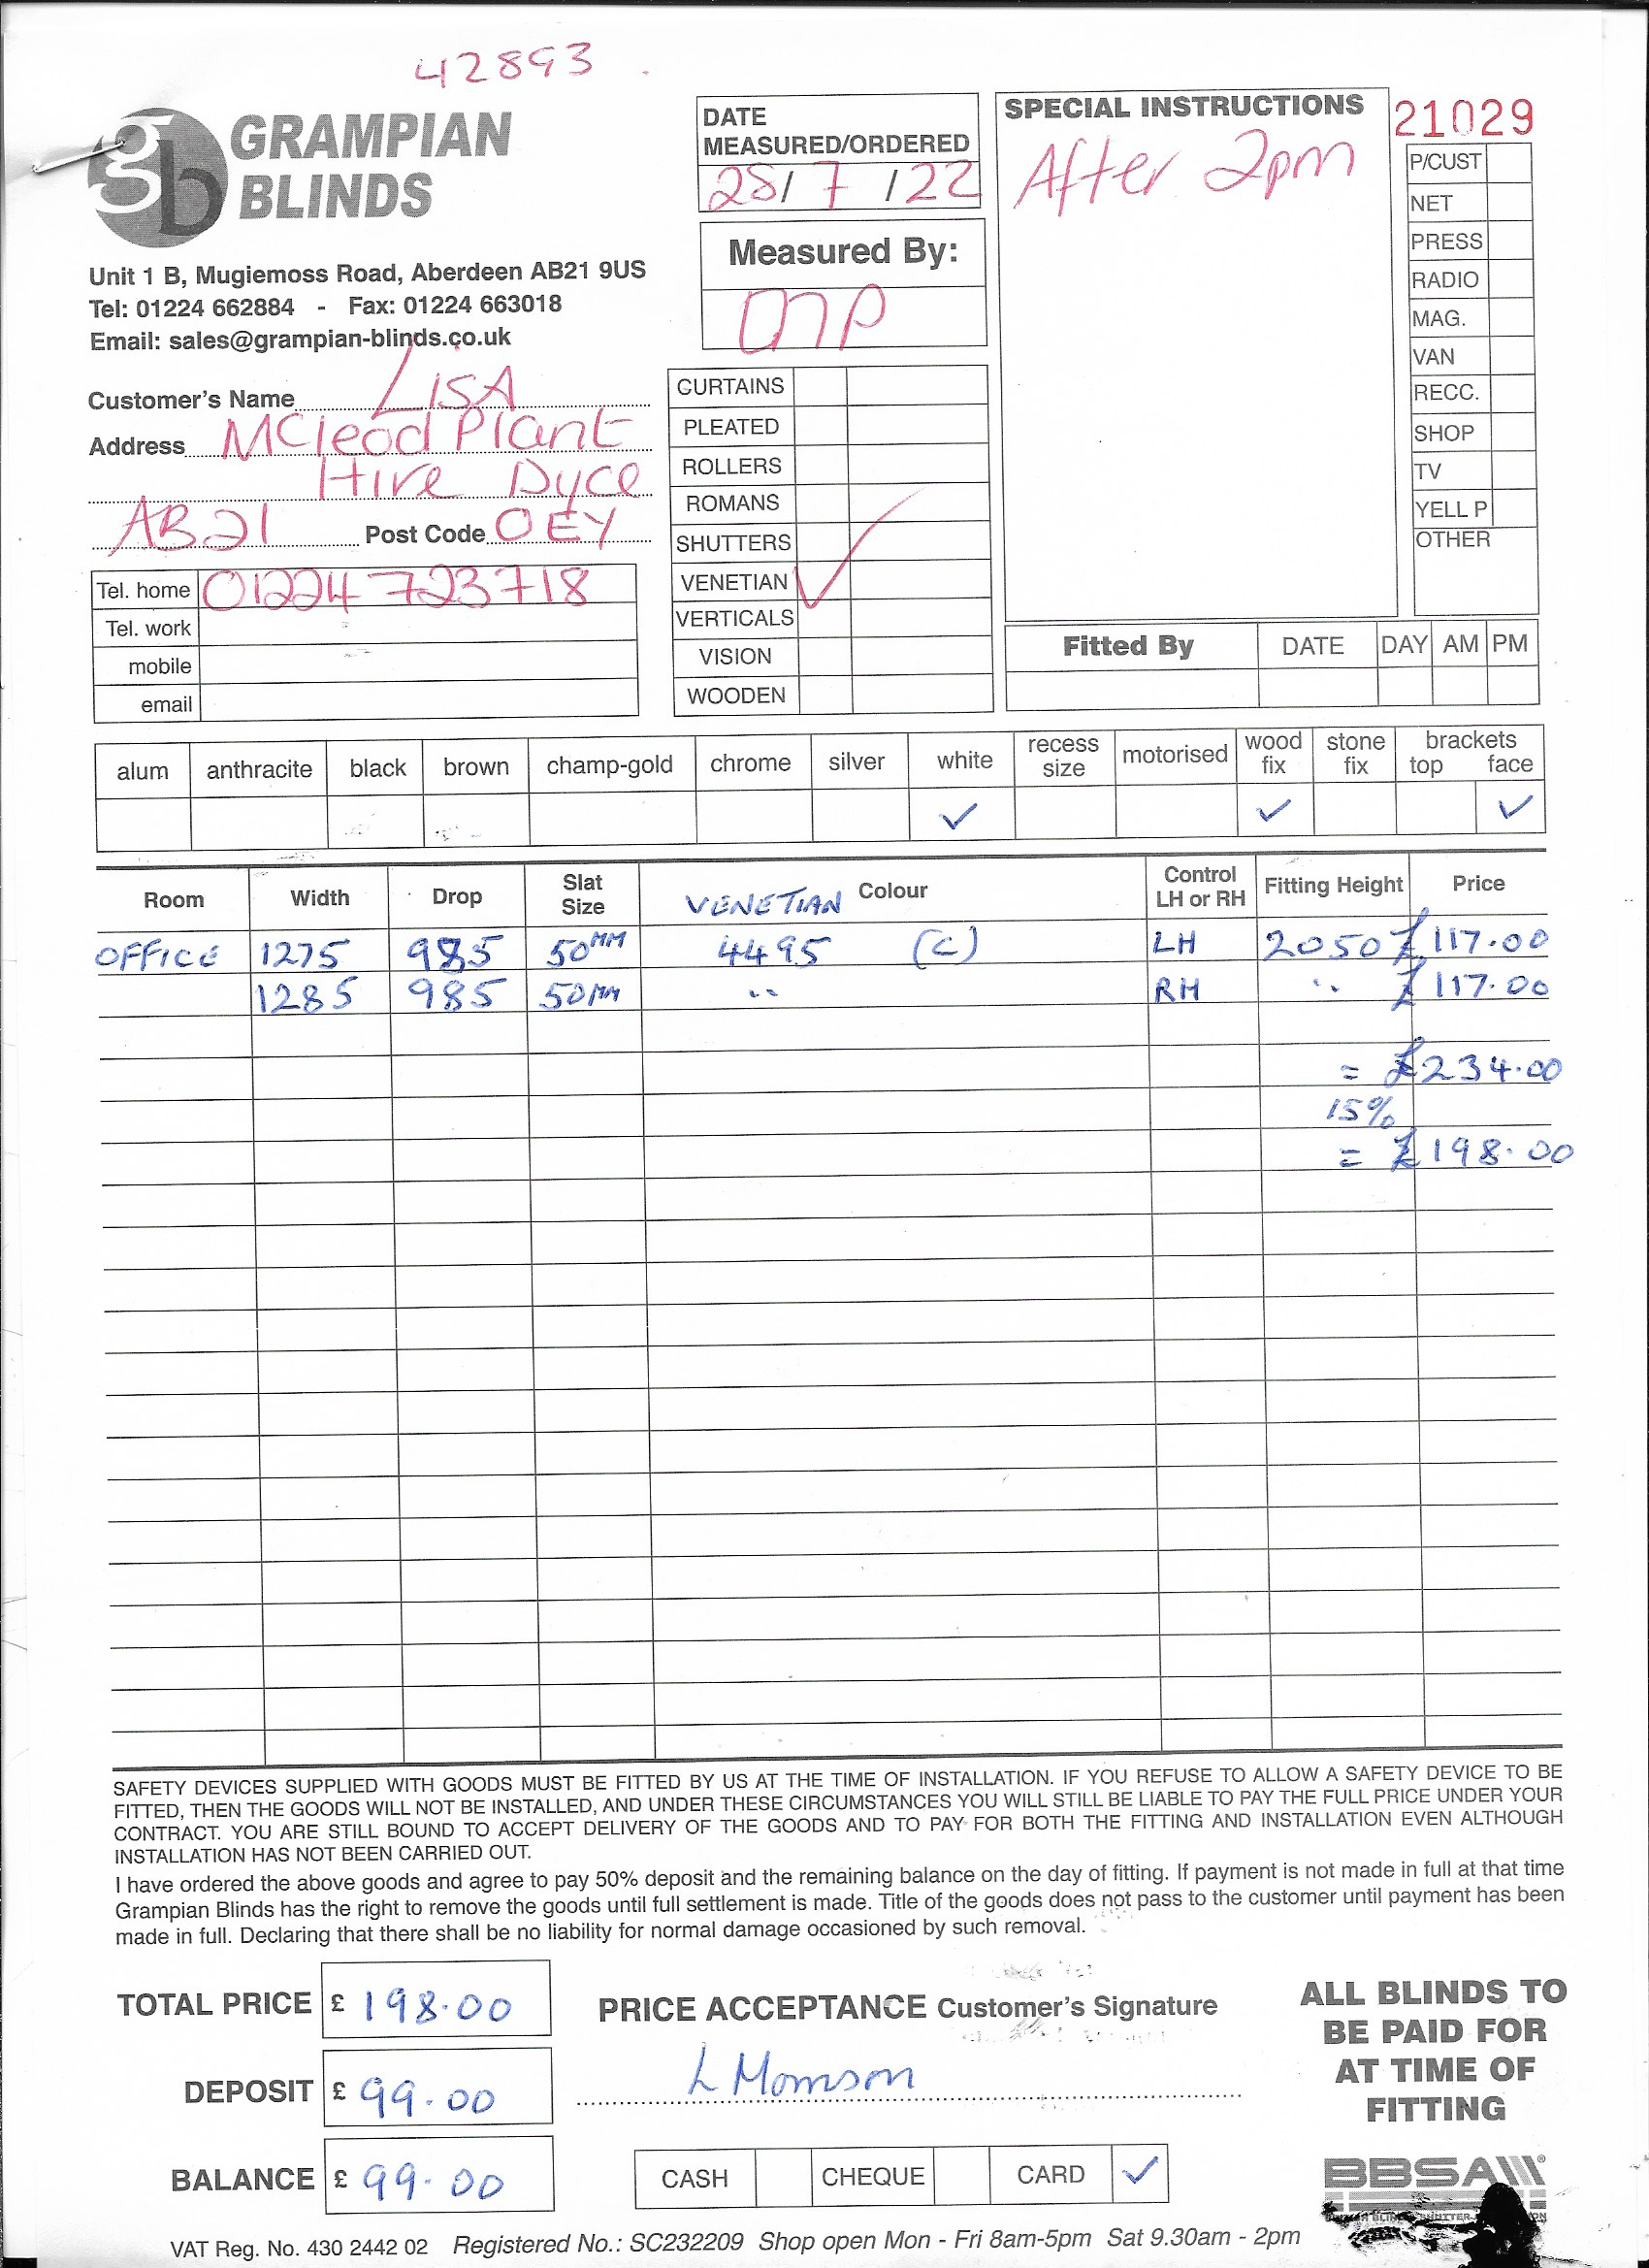 42893
GRAMPIAN
BLINDS
Unit 1 B, Mugiemoss Road, Aberdeen AB21 9US
Tel: 01224 662884 - Fax: 01224 663018
Email: sales@grampian-blinds.co.uk
Customer's Name LISA
Address MCleod Plant
Hire Dyce
AB21 Post Code OEY
Tel. home 01224 723718
Tel. work
mobile
email
DATE
MEASURED/ORDERED
28/ 7 /22
Measured By:
CURTAINS
PLEATED
ROLLERS
ROMANS
SHUTTERS
VENETIAN ✓
VERTICALS
VISION
WOODEN
SPECIAL INSTRUCTIONS
After 2pm
21029
P/CUST
NET
PRESS
RADIO
MAG.
VAN
RECC.
SHOP
TV
YELL P
OTHER
Fitted By DATE DAY AM PM
alum anthracite black brown champ-gold chrome silver white recess size motorised wood fix stone fix brackets top face
✓ ✓ ✓
Room Width Drop Slat Size VENETIAN Colour Control LH or RH Fitting Height Price
OFFICE 1275 985 50MM 4495 (C) LH 2050 £117.00
1285 985 50MM " RH " £117.00
= £234.00
15%
= £198.00
SAFETY DEVICES SUPPLIED WITH GOODS MUST BE FITTED BY US AT THE TIME OF INSTALLATION. IF YOU REFUSE TO ALLOW A SAFETY DEVICE TO BE
FITTED, THEN THE GOODS WILL NOT BE INSTALLED, AND UNDER THESE CIRCUMSTANCES YOU WILL STILL BE LIABLE TO PAY THE FULL PRICE UNDER YOUR
CONTRACT. YOU ARE STILL BOUND TO ACCEPT DELIVERY OF THE GOODS AND TO PAY FOR BOTH THE FITTING AND INSTALLATION EVEN ALTHOUGH
INSTALLATION HAS NOT BEEN CARRIED OUT.
I have ordered the above goods and agree to pay 50% deposit and the remaining balance on the day of fitting. If payment is not made in full at that time
Grampian Blinds has the right to remove the goods until full settlement is made. Title of the goods does not pass to the customer until payment has been
made in full. Declaring that there shall be no liability for normal damage occasioned by such removal.
TOTAL PRICE £ 198.00
DEPOSIT £ 99.00
BALANCE £ 99.00
PRICE ACCEPTANCE Customer's Signature
L Morrison
CASH CHEQUE CARD ✓
ALL BLINDS TO
BE PAID FOR
AT TIME OF
FITTING
BBSA
VAT Reg. No. 430 2442 02 Registered No.: SC232209 Shop open Mon - Fri 8am-5pm Sat 9.30am - 2pm